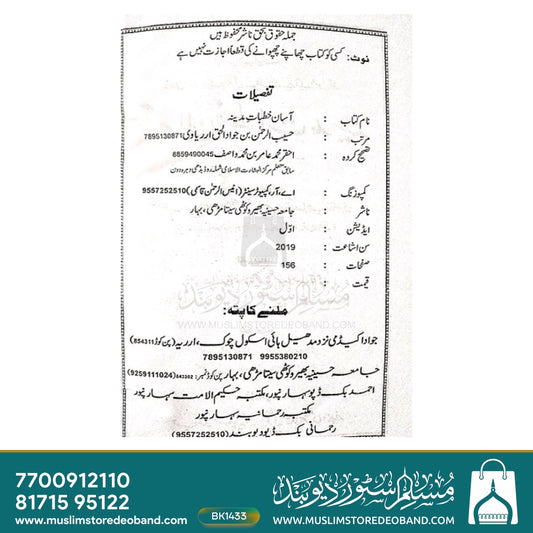 جملہ حقوق بحق ناشر محفوظ ہیں
نوٹ: کسی کو کتاب چھاپنے چھپوانے کی قطعاً اجازت نہیں ہے
تفصیلات
نام کتاب : آسان خطبات مدینہ
مرتب : حسیب الرحمٰن بن جواد الحق ارریاوی 7895130871
تصحیح کردہ : احقر محمد عامر بن محمد واصف 8859490045
سابق معلم مرکز البشارت الاسلامی شملہ روڈ بدھی دہرہ دون
کمپوزنگ : اے، آر، کمپیوٹر سینٹر (انیس الرحمٰن قاسمی) 9557252510
ناشر : جامعہ حسینیہ بھیرو کوٹھی سیتامڑھی، بہار
ایڈیشن : اوّل
سن اشاعت : 2019
صفحات : 156
قیمت :
مسلم سٹور دیوبند
WWW.MUSLIMSTOREDEOBAND.COM
ملنے کا پتہ:
جواد اکیڈمی نزد مدھیل ہائی اسکول چوک، ارریہ (پن کوڈ 854311)
7895130871 9955380210
جامعہ حسینیہ بھیرو کوٹھی سیتامڑھی، بہار پن کوڈ نمبر: 843302 (9259111024)
احمد بک ڈپو سہارنپور، مکتبہ حکیم الامت سہارنپور
مکتبہ رحمانیہ سہارنپور
رحمانی بک ڈپو دیوبند (9557252510)
7700912110
81715 95122
www.muslimstoredeoband.com
BK1433
مسلم سٹور دیوبند
WWW.MUSLIMSTOREDEOBAND.COM